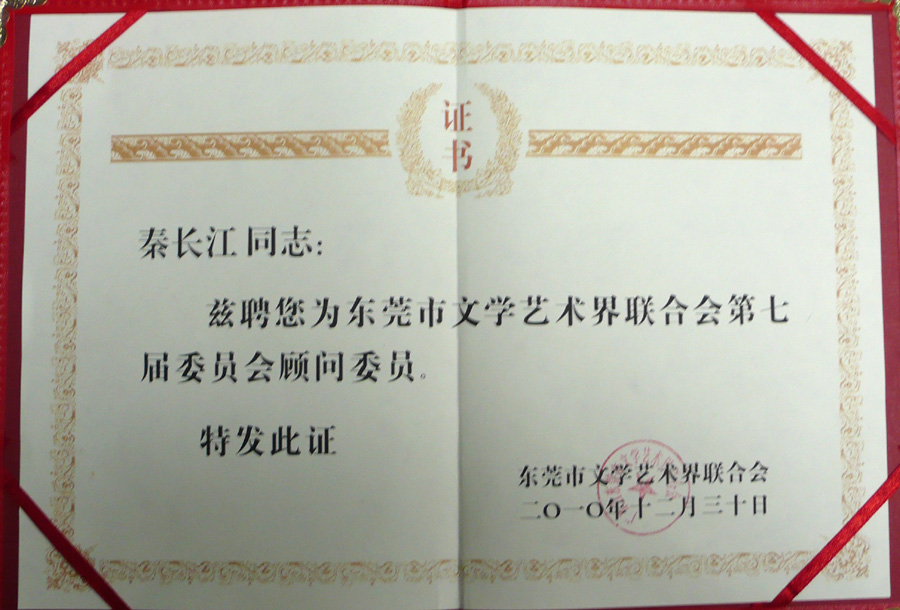 证
书
秦长江 同志：
兹聘您为东莞市文学艺术界联合会第七
届委员会顾问委员。
特发此证
东莞市文学艺术界联合会
二〇一〇年十二月三十日